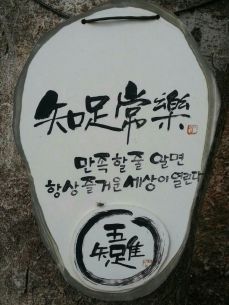 知足常樂
만족할줄 알면
항상 즐거운 세상이 열린다
吾唯知足